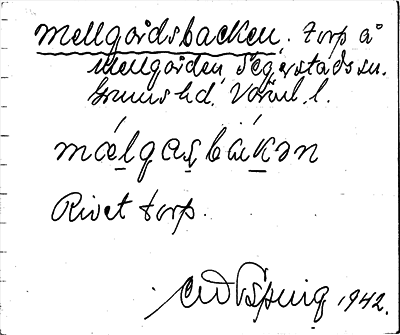 Mellgordsbacken. Torp å
Mellgorden, Segerstads sn.
Grums hd. Värml. l.
mälgasbäkən
Rivet torp.
1942.